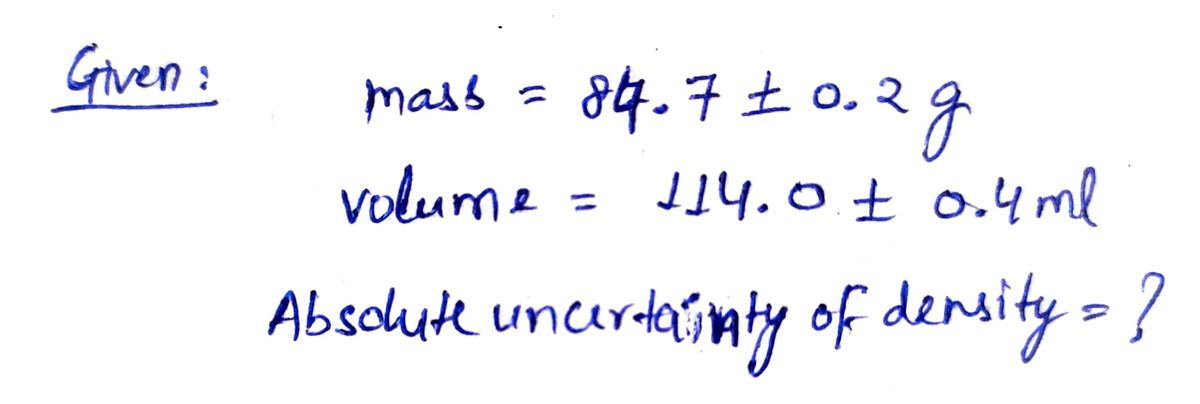 Given: mass = 84.7 ± 0.2 g
volume = 114.0 ± 0.4 ml
Absolute uncertainty of density = ?